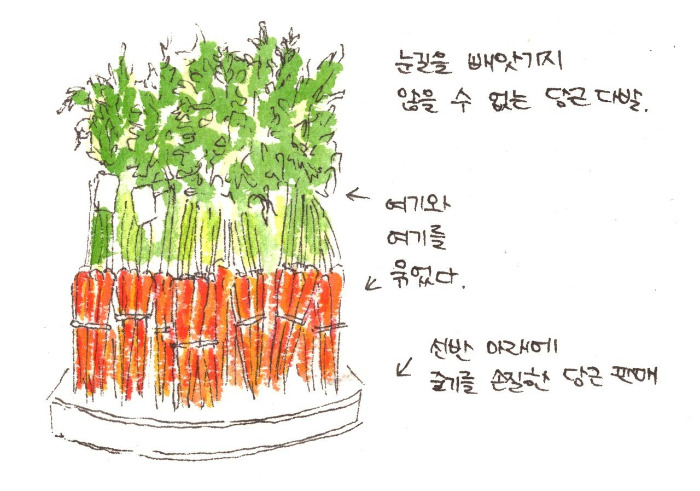 눈길을 빼앗기지
않을 수 없는 당근 다발.
여기와
여기를
묶었다.
선반 아래에
줄기를 손질한 당근 판매